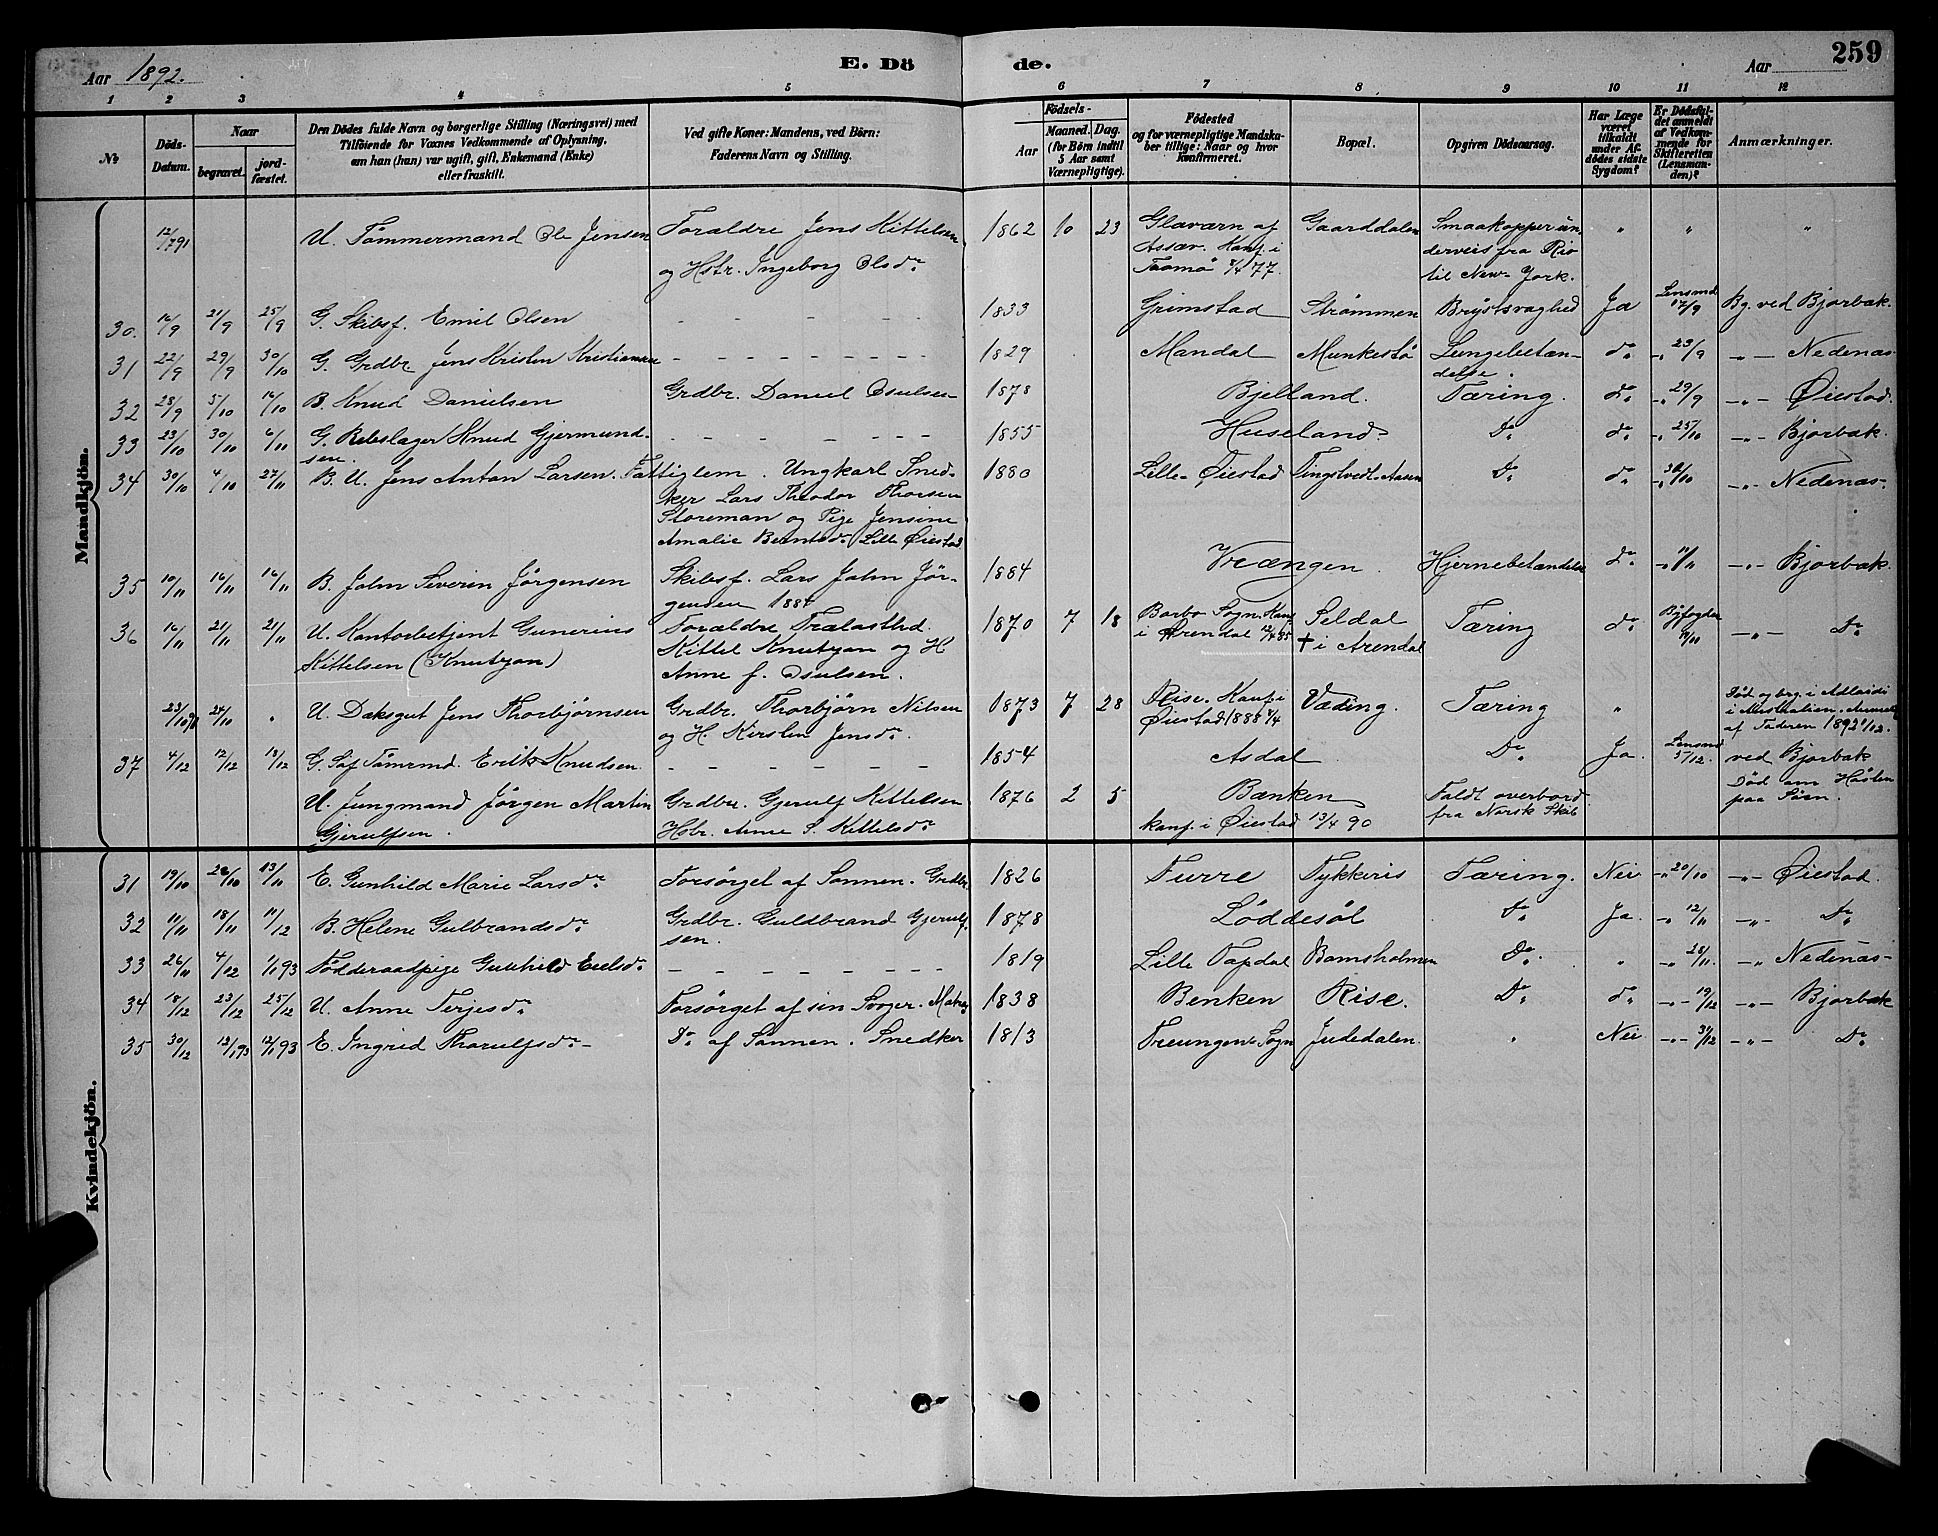 259
Aar 1892. E. Dö de. Aar
1 2 3 4 5 6 7 8 9 10 11 12
№ Döds-Datum. Naar begravet. jord-fæstet.
Den Dödes fulde Navn og borgerlige Stilling (Næringsvei) med
Tilföiende for Voxnes Vedkommende af Oplysning,
om han (hun) var ugift, gift, Enkemand (Enke)
eller fraskilt.
Ved gifte Koner: Mandens, ved Börn:
Faderens Navn og Stilling.
Födsels-
Aar Maaned. Dag.
(for Börn indtil
5 Aar samt
Værnepligtige).
Födested
og for værnepligtige Mandska-
ber tillige: Naar og hvor
konfirmeret.
Bopæl.
Opgiven Dödsaarsag.
Har Læge
været
tilkaldt
under Af-
dödes sidste
Sygdom?
Er Dödsfal-
det anmeldt
af Vedkom-
mende for
Skifteretten
(Lensman-
den)?
Anmærkninger.
Mandkjön.
12/7 91 U. Tömmermand Ole Jensen Foraldre Jens Kittelsen 1862 10 23 Glaværn af Gaarddalen Smaakopper un " " "
og Hstr. Ingeborg Olsd. Assær. Konf. i derveis fra Rio
Tromö 8/4 77. til New-York.
30. 16/9 21/9 25/9 G. Skibsf. Emil Olsen - - - - - 1833 Grimstad Strömmen Brystsvaghed Ja Lensmd 17/9 Bg. ved Bjorbak.
31 22/9 29/9 30/10 G. Grdbr. Jens Kristen Kristiansen - - - - - - 1829 Mandal Munkestö Lungebetæn- do. -"- 23/9 -"- Nedenæs
delse.
32 28/9 5/10 16/10 B. Knud Danielsen Grdbr. Daniel Osulsen 1878 Bjelland. Tæring. do. -"- 29/9 -"- Øiestad.
33 23/10 30/10 6/11 G. Rebslager Knud Gjermund- - - - - - - 1855 Huseland Do do. -"- 25/10 -"- Bjorbak.
sen.
34 30/10 4/10 27/11 B. U. Jens Anton Larsen. Fattiglem. Ungkarl Sned- 1880 Lille-Øiestad Tingstvedt. Aasen Do do. -"- 30/10 -"- Nedenæs.
ker Lars Theodor Thorsen
Storeman og Pige Jensine
Amalie Berntsd. Lille Øiestad
35 10/11 16/11 16/11 B. John Severin Jörgensen Skibsf. Lars John Jör- 1884 Vrængen. Hjernebetændelse Do. -"- 11/11 -"- Bjorbak.
gensen 1884
36 16/11 21/11 21/11 U. Kontorbetjent Gunerius Foraldre Trælasthd. 1870 7 18 Barbo Sogn. Konf. Seldal Tæring do. Byfogden 19/11 -"- Do.
Kittelsen (Knutzon) Kittel Knutzon og H i Arendal 12/4 85 † i Arendal
Anne f. Osulsen.
23/10 91 24/10 " U. Daksgut Jens Thorbjörnsen Grdbr. Thorbjörn Nilsen 1873 7 28 Rise. Konf. i Væding. Tæring " Död og beg. i Adlaide
og H. Kirsten Jensd. Øiestad 1888 i Australien.
af Faderen 1892
37 4/12 12/12 13/12 G. Söf. Tömrmd. Erik Knudsen. - - - - - 1854 Asdal Do Ja. Lensmd 5/12. ved Bjorbak
U. Jungmand Jörgen Martin Grdbr. Gjerulf Kittelsen 1876 2 5 Bænken Faldt overbord Död om Hösten
Gjerulfsen. Hstr. Anne S. Kittelsd. konf. i Øiestad 13/4 90 fra Norsk Skib paa Söen.
Kvindekjön.
31 19/10 26/10 13/11 E. Gunhild Marie Larsd. Forsörget af Sönnen. Grdbr. 1826 Furre Tykkeris Tæring. Nei -"- 20/10 -"- Øiestad.
32 11/11 18/11 11/12 B. Helene Gulbrandsd. Grdbr. Guldbrand Gjerulf- 1878 Löddesöl Do Ja. -"- 12/11 -"- Do.
sen.
33 26/11 4/12 1/1 93 Födderaadpige Gunhild Eielsd. - - - - - - 1819 Lille Vapdal Bomsholmen Do. " -"- 28/11. -"- Nedenæs
34 18/12 23/12 25/12 U. Anne Terjesd. Forsörget af sin Svoger. 1838 Benken Rise. Do. do. -"- 19/12 -"- Bjorbak
35 30/12 12/1 93 12/1 93 E. Ingrid Thorulfsd. Do. af Sönnen. Snedker 1813 Treungen Sogn Judedalen. " Nei -"- 31/12 -"- Do.